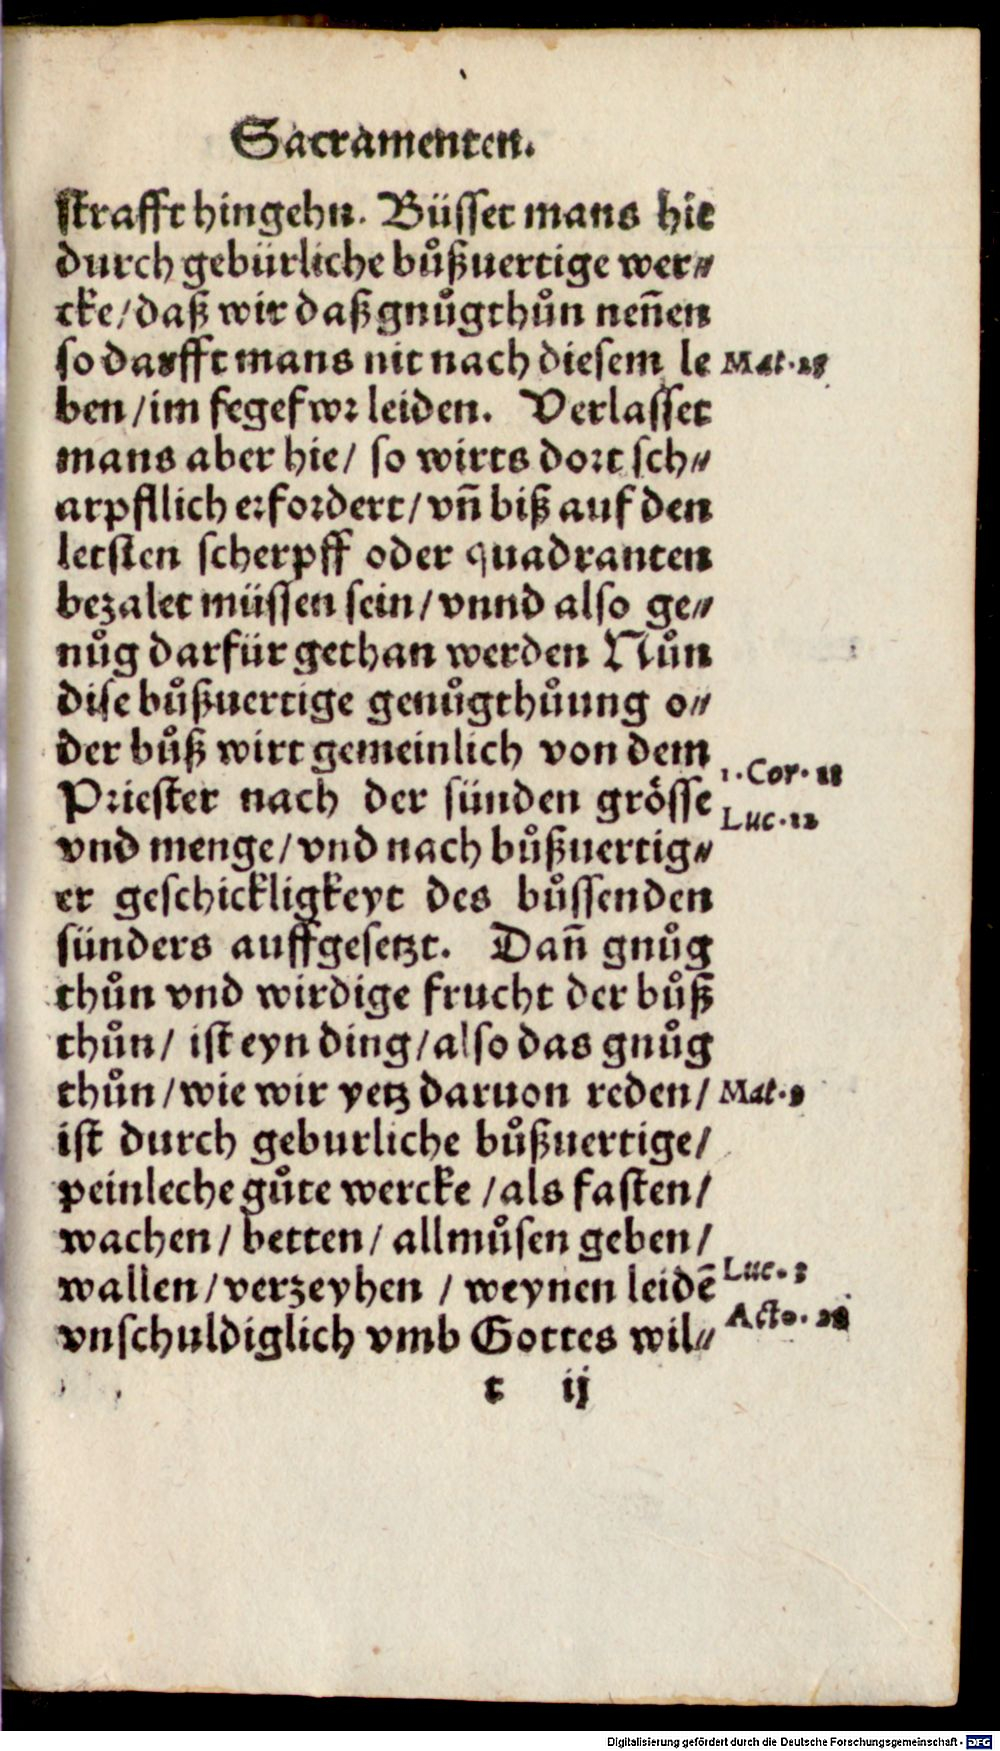 Sacramenten.
strafft hingehn. Büsset mans hie
durch gebürliche bůßuertige wer⸗
cke/ daß wir daß gnůgthůn neñen
so darfft mans nit nach diesem le
Mat.
ben/ im fegefwr leiden. Verlasset
mans aber hie/ so wirts dort sch⸗
arpfllich erfordert/ vñ biß auf den
letsten scherpff oder quadranten
bezalet müssen sein/ vnnd also ge⸗
nůg darfür gethan werden Nůn
dise bůßuertige genůgthůung o⸗
der bůß wirt gemeinlich von dem
1. Cor. 11
Priester nach der sünden grösse
Luc. 12
vnd menge/ vnd nach bůßuertig⸗
er geschickligkeyt des bůssenden
sünders auffgesetzt. Dañ gnůg
thůn vnd wirdige frucht der bůß
thůn/ ist eyn ding/ also das gnůg
thůn/ wie wir yetz daruon reden/
Mat. 3
ist durch geburliche bůßuertige/
peinleche gůte wercke / als fasten/
wachen/ betten/ allmůsen geben/
wallen/ verzeyhen / weynen leidē
Luc. 3
vnschuldiglich vmb Gottes wil⸗
Acto.
t ij
Digitalisierung gefördert durch die Deutsche Forschungsgemeinschaft - DFG